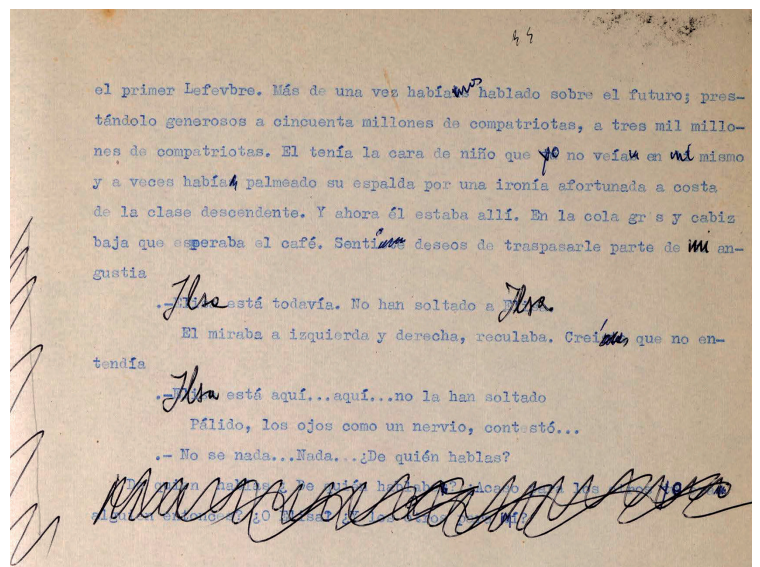 44
el primer Lefevbre. Más de una vez habíamos hablado sobre el futuro; pres-
tándolo generosos a cincuenta millones de compatriotas, a tres mil millo-
nes de compatriotas. El tenía la cara de niño que yo no veía en mí mismo
y a veces había palmeado su espalda por una ironía afortunada a costa
de la clase descendente. Y ahora él estaba allí. En la cola gris y cabiz
baja que esperaba el café. Sentí deseos de traspasarle parte de mi an-
gustia
.-Ilsa está todavía. No han soltado a Ilsa.
El miraba a izquierda y derecha, reculaba. Creí que no en-
tendía
.-Ilsa está aquí...aquí...no la han soltado
Pálido, los ojos como un nervio, contestó...
.- No se nada...Nada...¿De quién hablas?
¿De quién hablas? ¿Acaso para los otros yo
alguien entonces? ¿O Elisa? ¿Y los otros para mí?